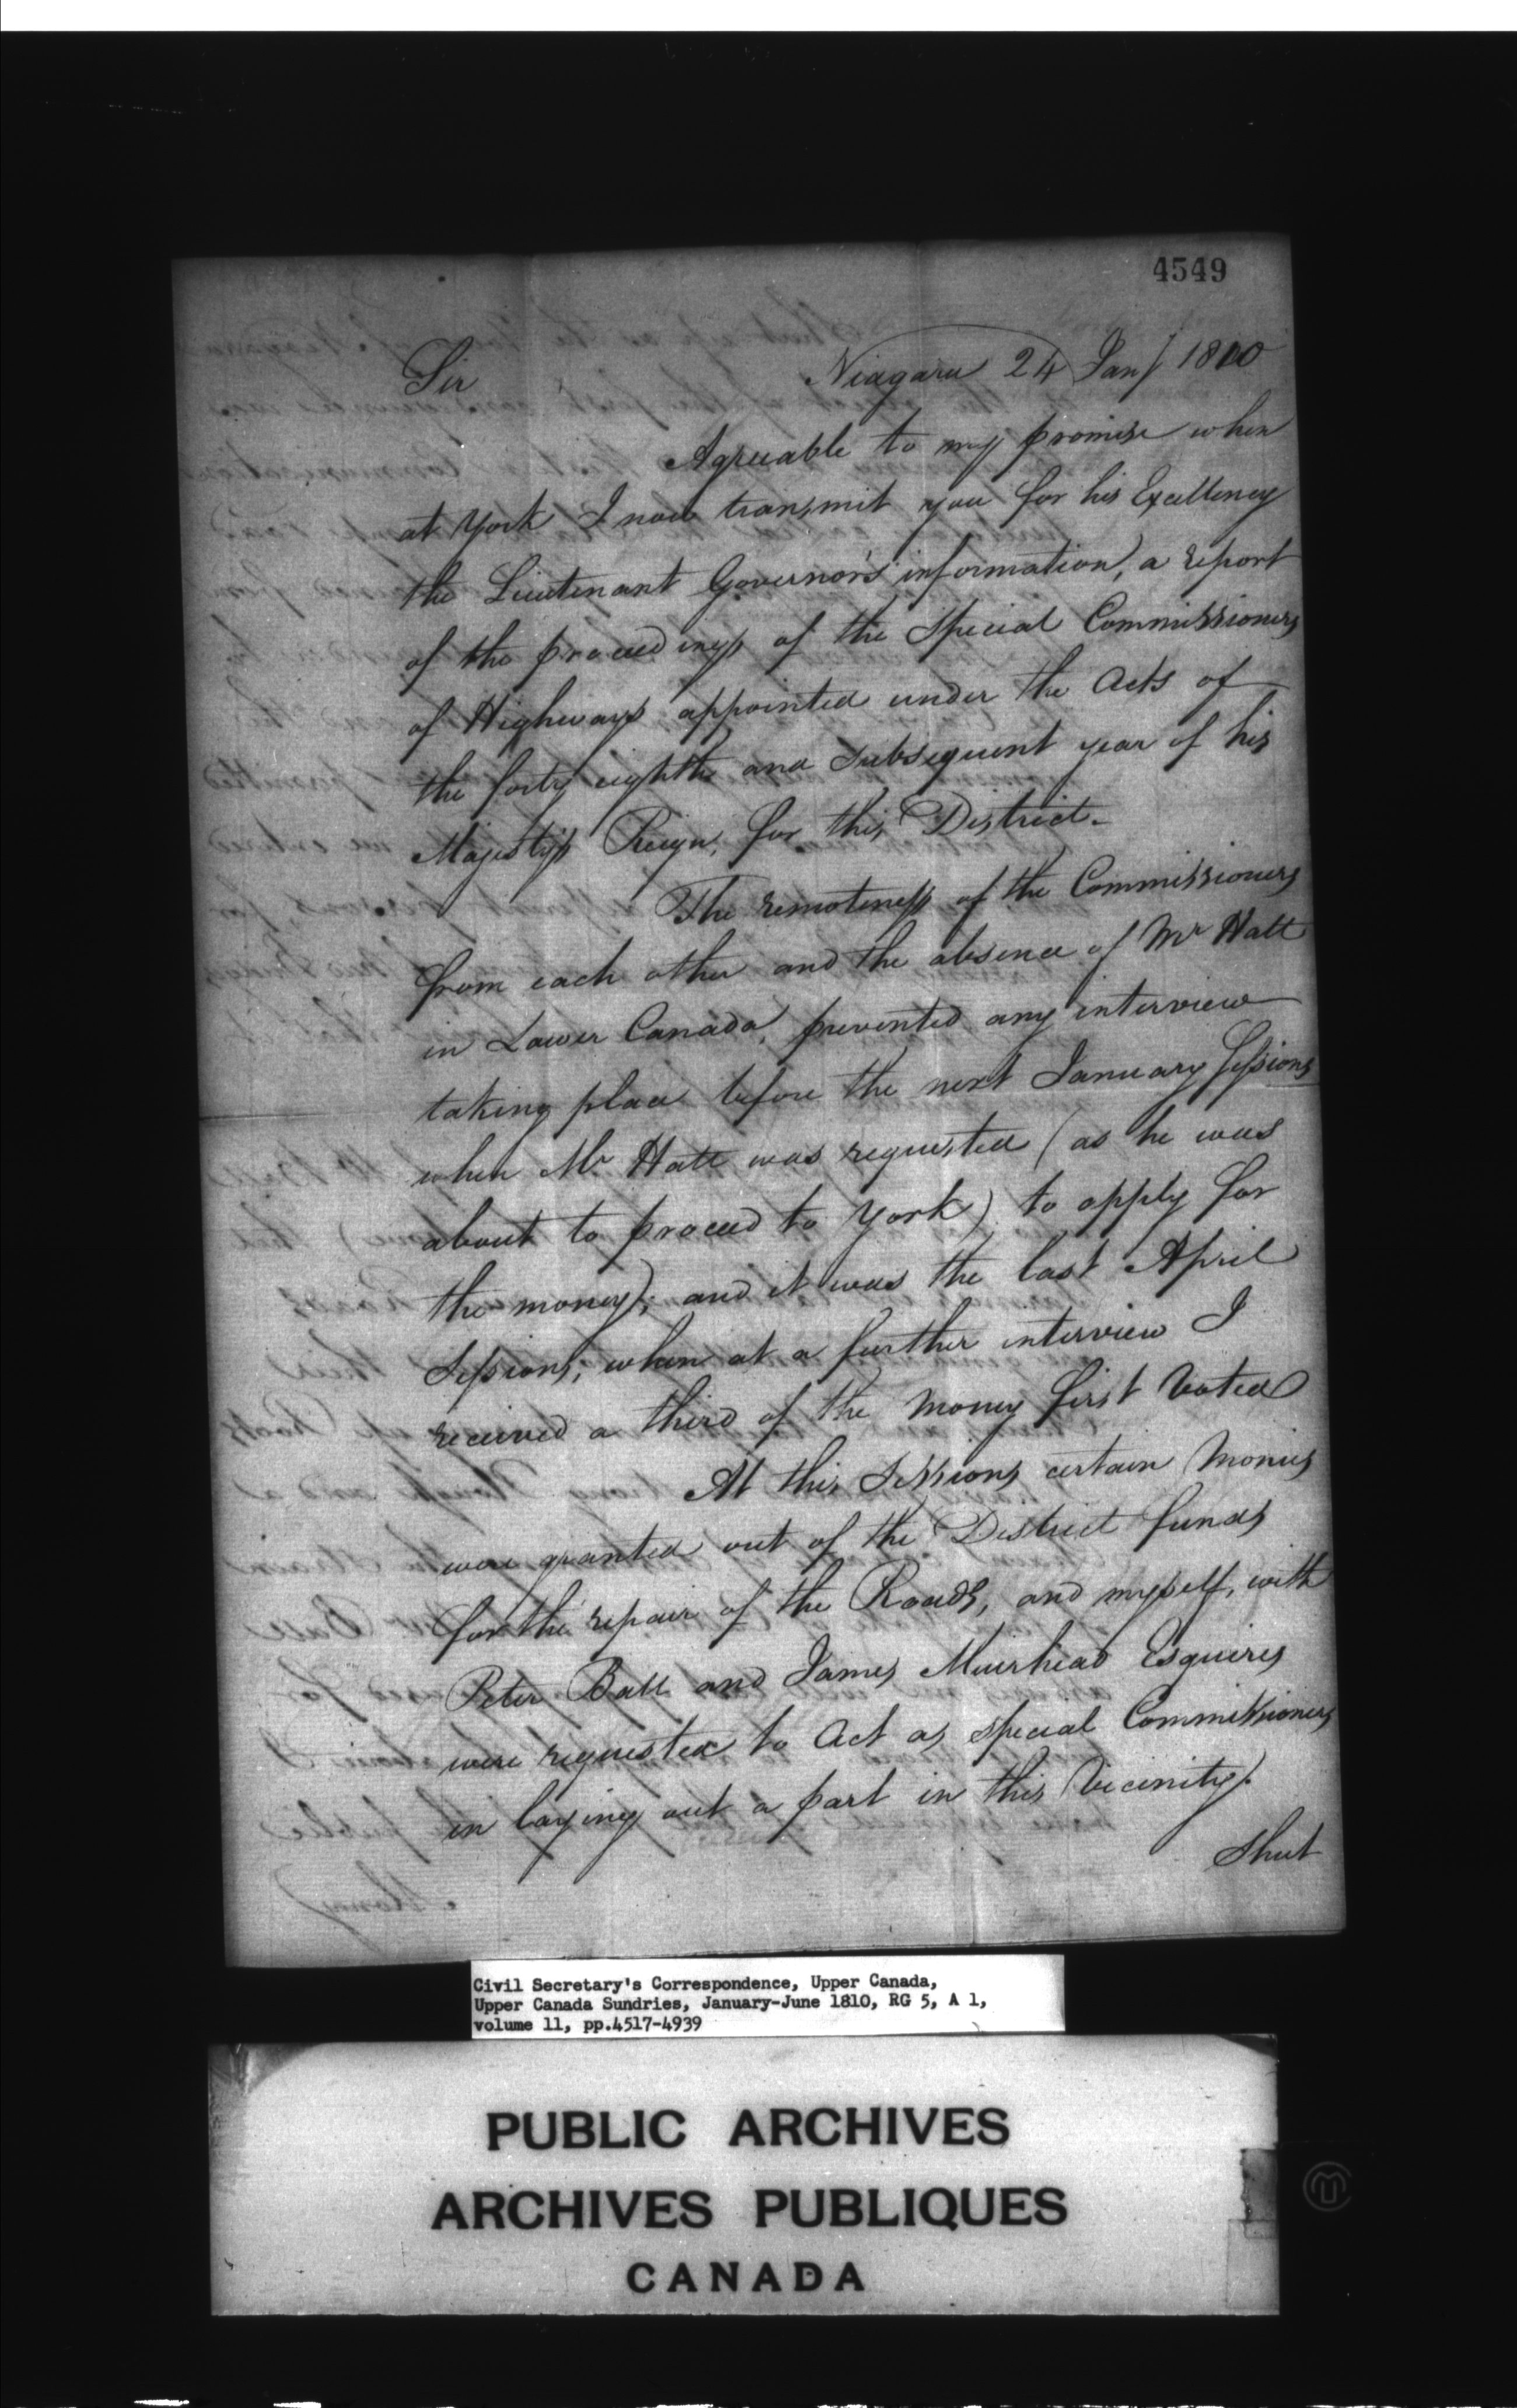 4549
Sir Niagara 24 Jany 1810
Agreeable to my promise when
at York I now transmit you for his Excellency
the Lieutenant Governor's information, a report
of the proceedings of the Special Commissioners
of Highways appointed under the Acts of
the forty eighth and Subsequent year of his
Majesty's Reign, for this District.
The remoteness of the Commissioners
from each other and the absence of Mr Hatt
in Lower Canada, prevented any interview
taking place before the next January Sessions
when Mr Hatt was requested (as he was
about to proceed to York) to apply for
the money; and it was the last April
Sessions; when at a further interview I
received a third of the Money first Voted
At this Sessions certain Monies
were granted out of the District funds
for the repair of the Roads, and myself, with
Peter Ball and James Muirhead Esquires
were requested to Act as Special Commissioners
in laying out a part in this Vicinity.
Shut
Civil Secretary's Correspondence, Upper Canada,
Upper Canada Sundries, January-June 1810, RG 5, A 1,
volume 11, pp.4517-4939
PUBLIC ARCHIVES
ARCHIVES PUBLIQUES
CANADA